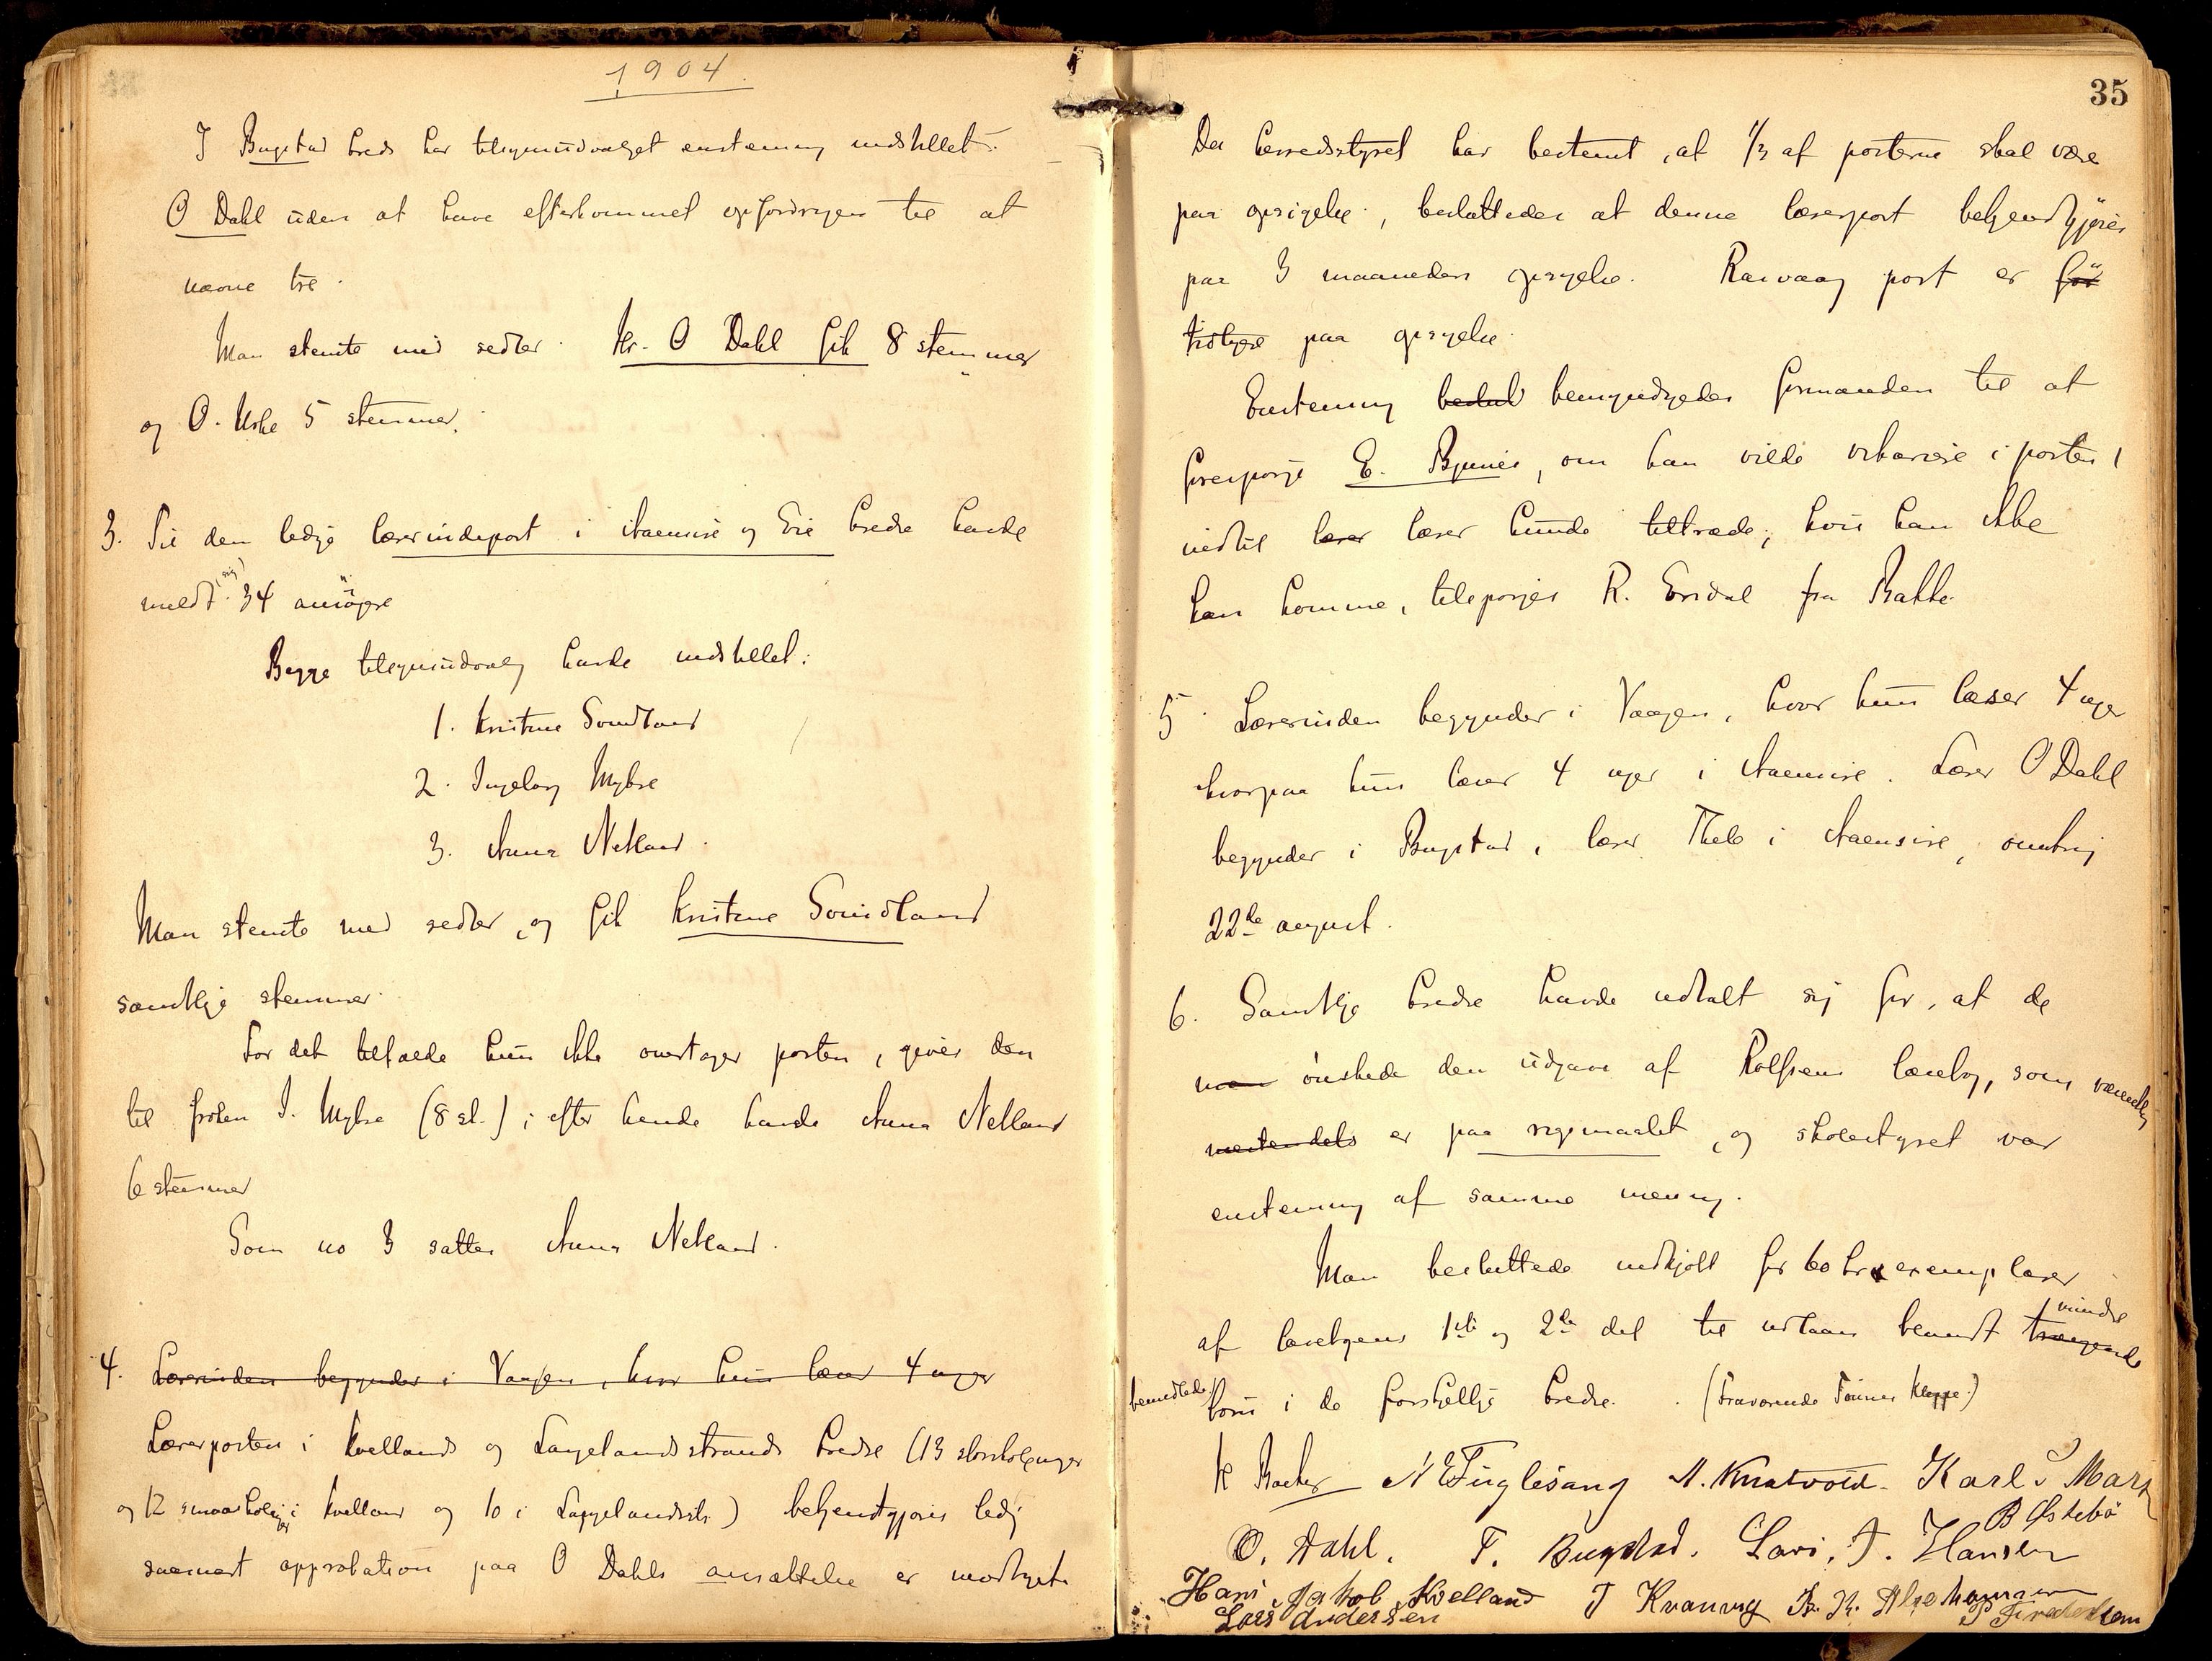 1904.
I Bugstad kreds har tilsynsudvalget enstemmig indstillet
O Dahl uden at have efterkommet opfordringen til at
nævne tre.
Man stemte med sedler. Kr. O Dahl fik 8 stemmer
og O. Urke 5 stemmer.
3. Til den ledige lærerindepost i Aaensire og Eie kredse havde
meldt (sig) 34 ansögere
Begge tilsynsudvalg havde indstillet:
1. Kristine Somdland
2. Ingeborg Myhre
3. Anna Netland.
Man stemte med sedler, og fik Kristine Somdland
samtlige stemmer.
For det tilfælde hun ikke overtager posten, gives den
til fröken I. Myhre (8 st.); efter hende havde Anna Netland
6 stemmer
Som no 3 sattes Anna Netland.
4. Lærerinden begynder i Vaagen, hvor hun læser 4 uger
Lærerposten i Kvellands og Langelandsstrands kredse (13 storskoleuger
og 12 smaaskoleuger i Kvelland og 10 i Langelandsstr.) bekjendtgjøres ledig
snarest approbation paa O Dahls ansættelse er modtaget.
35
Da herredsstyret har bestemt, at 1/3 af posterne skal være
paa opsigelse, besluttedes at denne lærerpost bekjendtgjöres
paa 3 maaneders opsigelse. Rasvaag post er för
tidligere paa opsigelse.
Enstemmig beslut bemyndigedes formanden til at
forespørge E. Bjunes, om han vilde vikariere i posten,
indtil lærer læser kunde tiltræde; hvis han ikke
kan komme, tilspørges R. Ersdal fra Bakke.
5. Lærerinden begynder i Vaagen, hvor hun læser 4 uger
hvorpaa hun læser 4 uger i Aaensire. Lærer O Dahl
begynder i Bugstad, lærer Thele i Aaensire, omtring
22de august.
6. Samtlige kredse havde udtalt sig for, at de
man ønskede den udgave af Rolfsens læsebog, som væsentlig
mestendels er paa rigsmaalet, og skolestyret var
enstemmig af samme mening.
Man besluttede indkjøbt for 60 kr exemplarer
af læsebogens 1ste og 2den del til udlaan blandt trængende mindre
bemidlede børn i de forskjellige kredse. (Fraværende Tönnes Kleppe.)
K Barker N E Fuglesang N. Knatvold. Karl J Marh
B Østebö
O. Dahl. T. Bugstad. Lars. J. Hansen
Hans Jakob Kvelland T Kvanvig B. K. Abrahamsen
Lars Andersen P Fredriksen